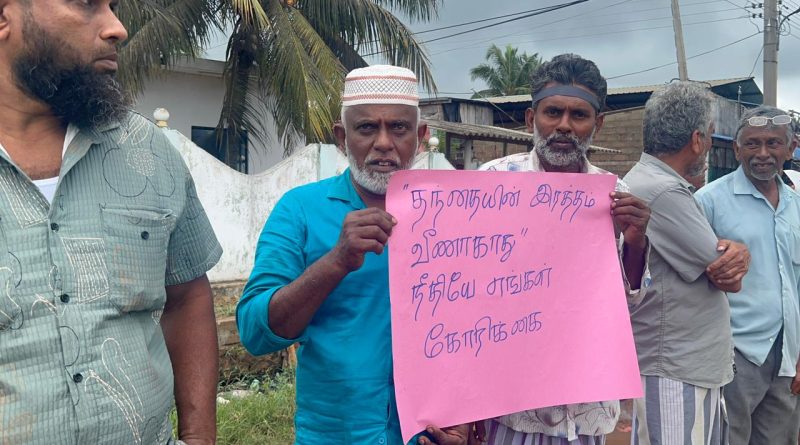 "தந்தையின் இரத்தம்
வீணாகாது"
நீதியே எங்கள்
கோரிக்கை